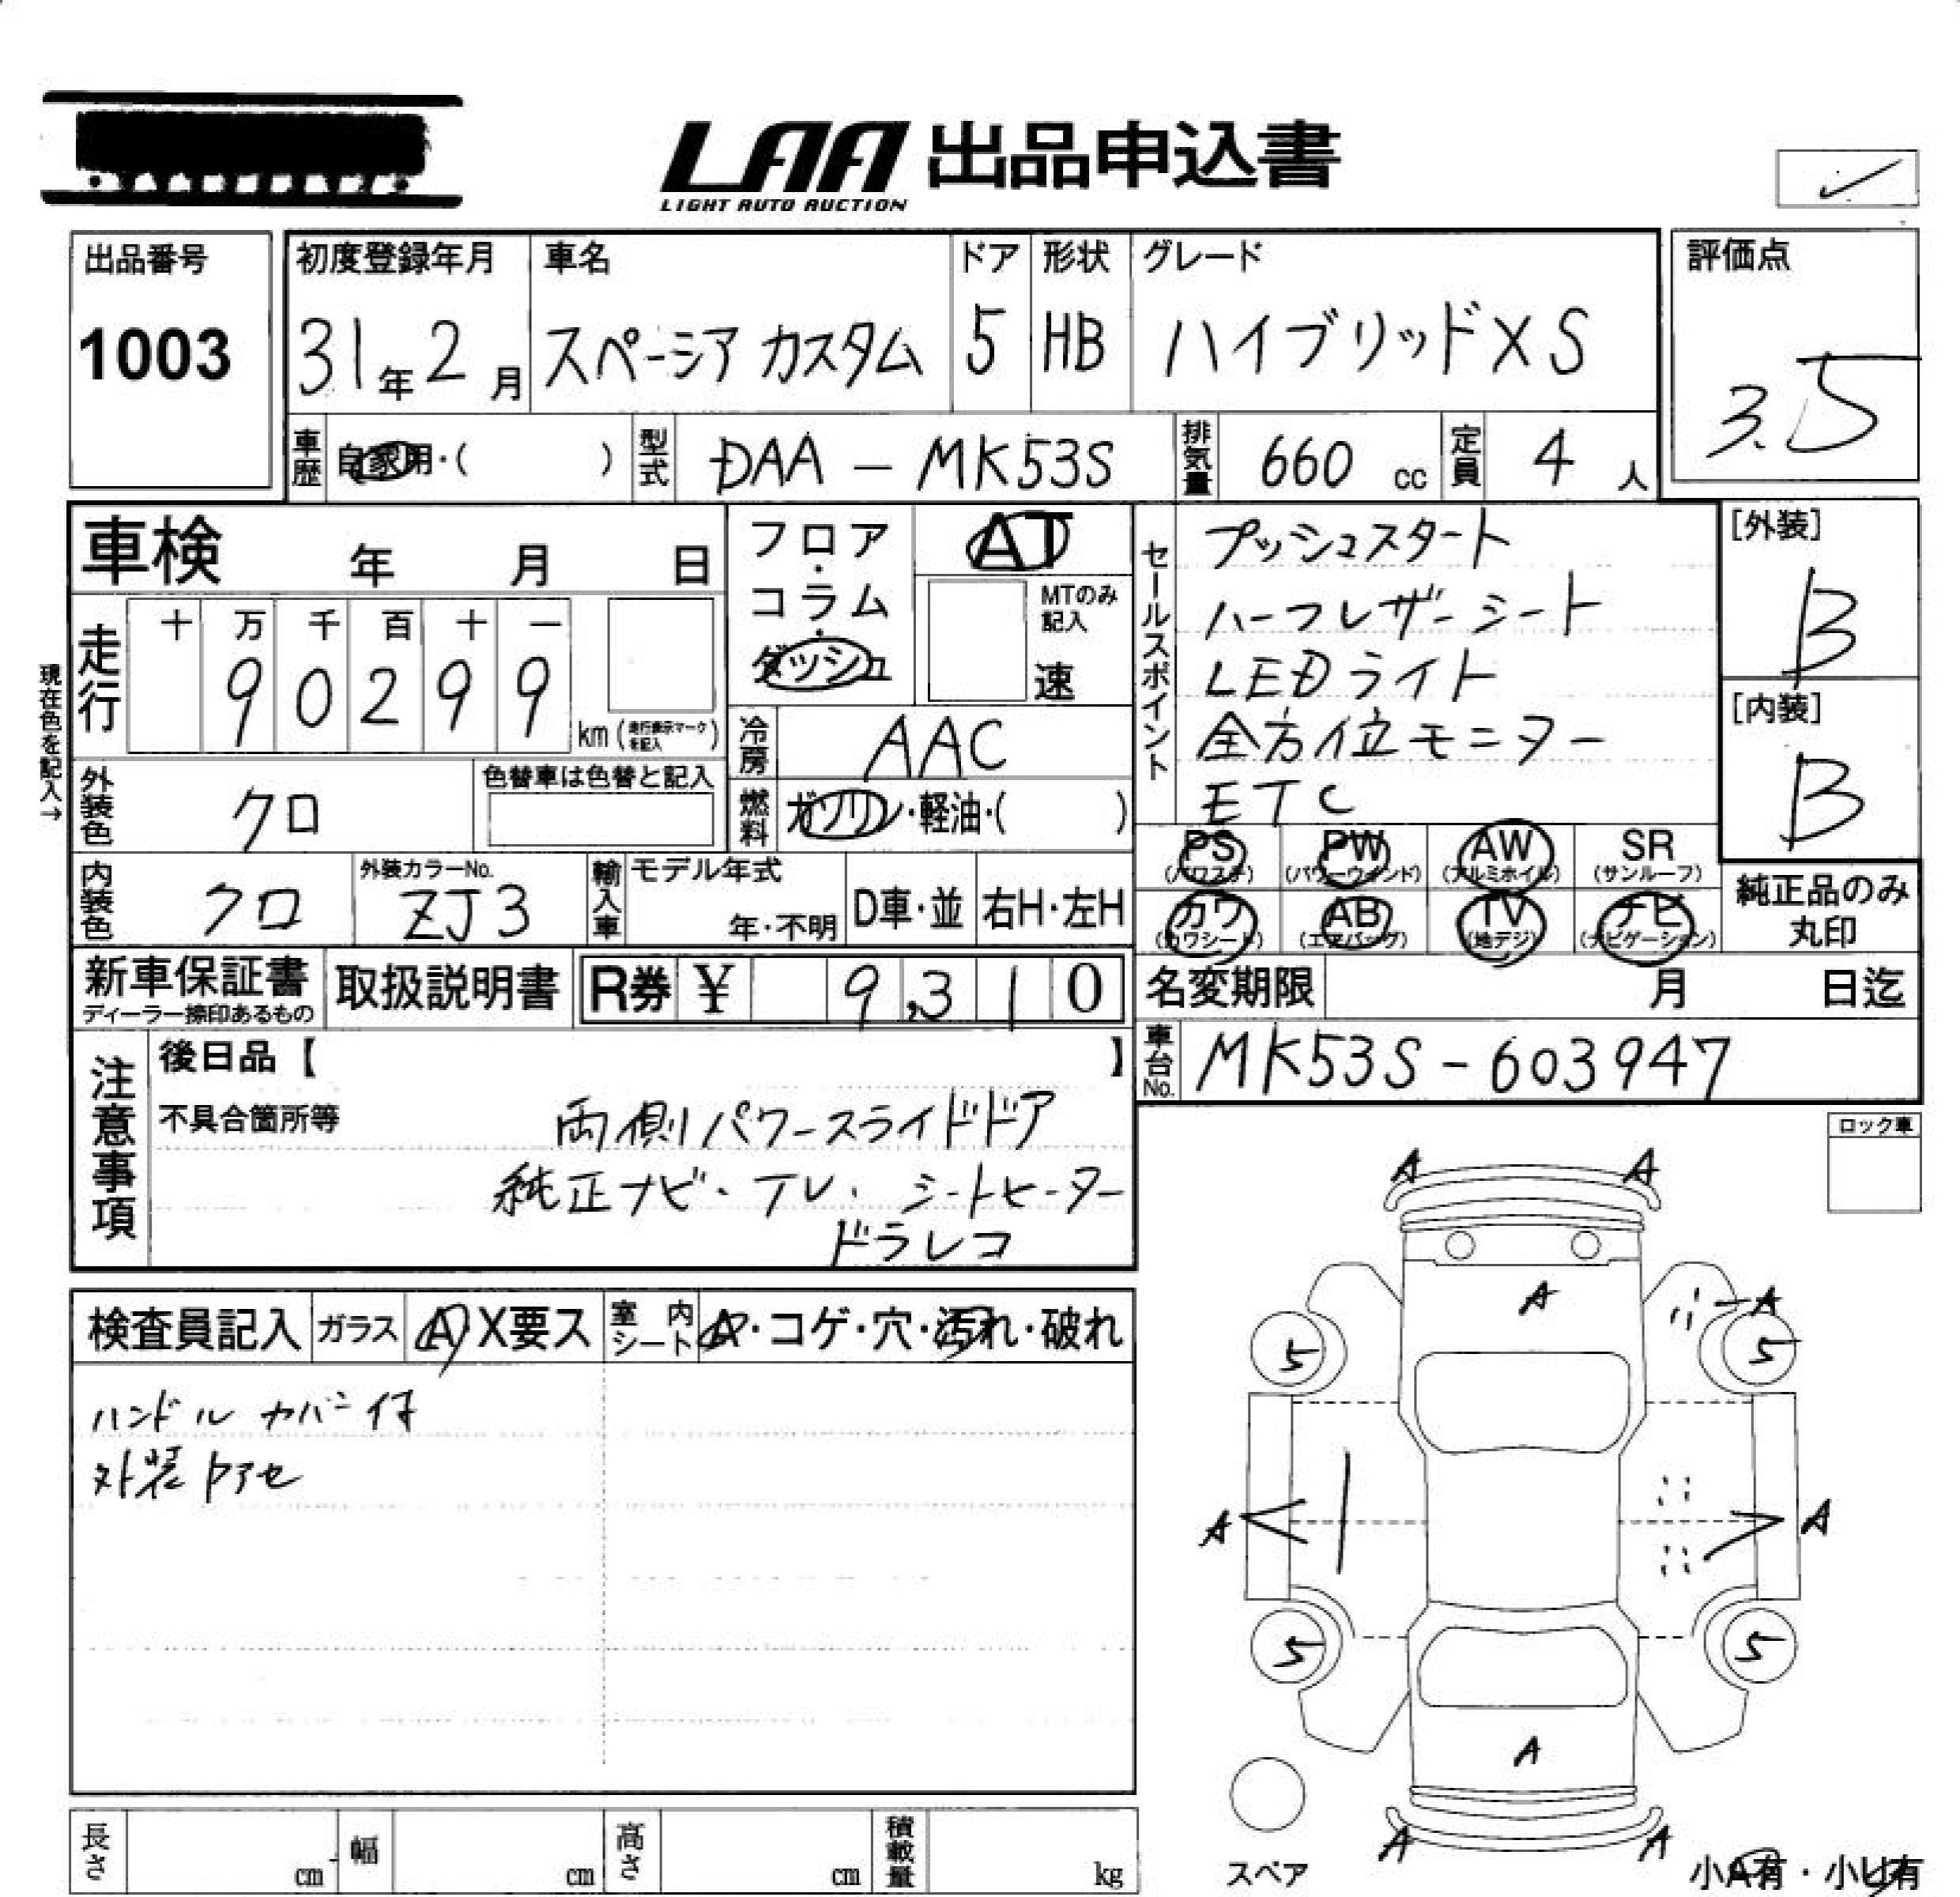 LAA 出品申込書
LIGHT AUTO AUCTION
✓
出品番号
1003
初度登録年月
31年2月
車名
スペーシア カスタム
ドア
5
形状
HB
グレード
ハイブリッドXS
評価点
3.5
車歴 自家用・( )
型式 DAA-MK53S
排気量 660 cc
定員 4 人
車検 年 月 日
フロア・コラム・ダッシュ
AT
MTのみ記入
速
セールスポイント
プッシュスタート
ハーフレザーシート
LEDライト
全方位モニター
ETC
[外装]
B
[内装]
B
現在色を記入→
走行
十 万 千 百 十 一
9 0 2 9 9
km (走行表示マークを記入)
冷房 AAC
外装色 クロ
色替車は色替と記入
燃料 ガソリン・軽油・( )
PS (パワステ)
PW (パワーウインド)
AW (アルミホイル)
SR (サンルーフ)
カワ (カワシート)
AB (エアバッグ)
TV (地デジ)
ナビ (ナビゲーション)
純正品のみ丸印
内装色 クロ
外装カラーNo.
ZJ3
輸入車
モデル年式
年・不明
D車・並
右H・左H
新車保証書
ディーラー捺印あるもの
取扱説明書
R券 ¥ 9,310
名変期限 月 日迄
車台No. MK53S-603947
注意事項
後日品【 】
不具合箇所等
両側パワースライドドア
純正ナビ・TV・シートヒーター
ドラレコ
ロック車
検査員記入
ガラス A X要ス
室内シート A・コゲ・穴・汚れ・破れ
ハンドルカバー付
外装アセ
A A
A
A
5 5
A A
5 5
A
A A
スペア
小A有・小U有
長さ cm
幅 cm
高さ cm
積載量 kg